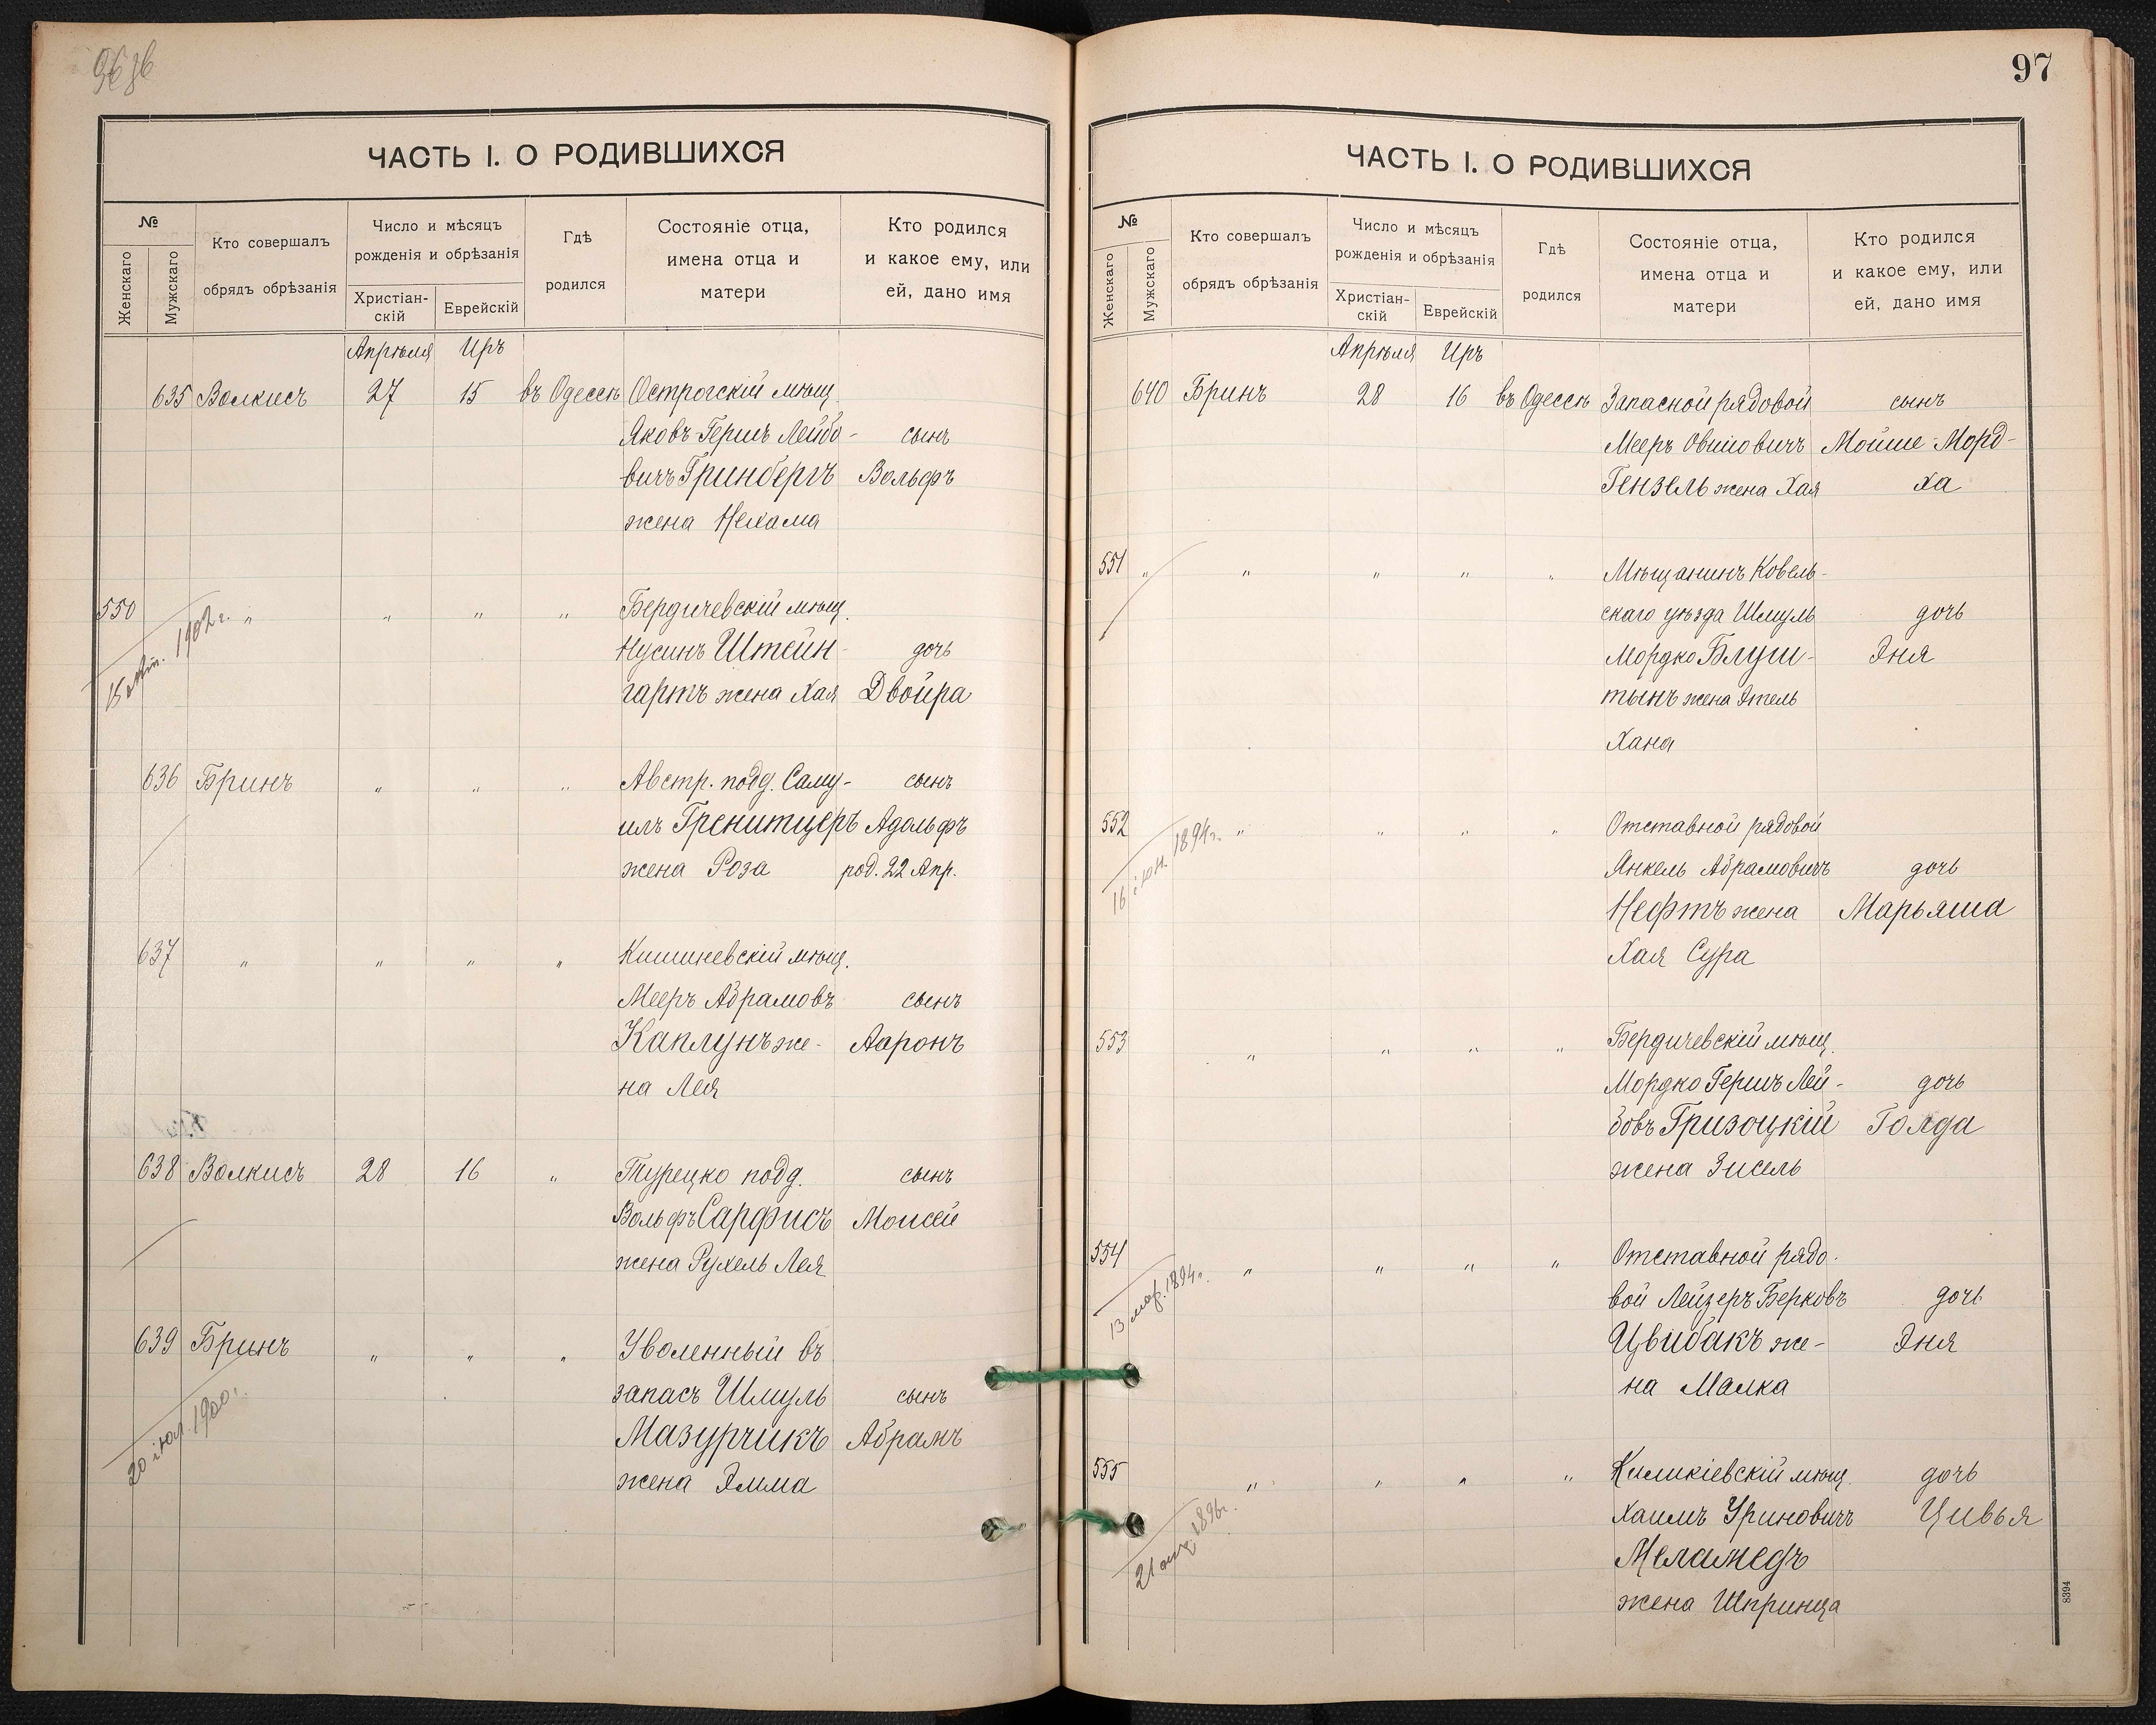 ЧАСТЬ I. О РОДИВШИХСЯ
№
Женскаго
Мужскаго
Кто совершалъ
обрядъ обрѣзанія
Число и мѣсяцъ
рожденія и обрѣзанія
Христіан-
скій
Еврейскій
Гдѣ
родился
Состояніе отца,
имена отца и
матери
Кто родился
и какое ему, или
ей, дано имя
Апрѣля Иръ
635 Волкисъ 27 15 въ Одессѣ Острогскій мѣщ.
Яковъ-Гершъ Лейбо- сынъ
вичъ Гринбергъ Вольфъ
жена Нехама
550 " " " " Бердичевскій мѣщ.
1902г.
Нусинъ Штейн- дочь
гартъ жена Хая Двойра
636 Бринъ " " " Австр. подд. Саму- сынъ
илъ Гренитцеръ Адольфъ
жена Роза род. 22 Апр.
637 " " " " Кишиневскій мѣщ.
Мееръ Абрамовъ сынъ
Каплунъ же- Ааронъ
на Лея
638 Волкисъ 28 16 " Турецко подд. сынъ
Вольфъ Сарфисъ Моисей
жена Рухель Лея
639 Бринъ " " " Уволенный въ
20 іюл. 1900г.
запасъ Шмуль сынъ
Мазурчикъ Абрамъ
жена Эмма
97
ЧАСТЬ I. О РОДИВШИХСЯ
№
Женскаго
Мужскаго
Кто совершалъ
обрядъ обрѣзанія
Число и мѣсяцъ
рожденія и обрѣзанія
Христіан-
скій
Еврейскій
Гдѣ
родился
Состояніе отца,
имена отца и
матери
Кто родился
и какое ему, или
ей, дано имя
Апрѣля Иръ
640 Бринъ 28 16 въ Одессѣ Запасной рядовой сынъ
Мееръ Овшіовичъ Мойше-Морд-
Гензель жена Хая ха
551 " " " " " Мѣщанинъ Ковель-
скаго уѣзда Шмуль дочь
Мордко Блуш- Эня
тынъ жена Этель
Хана
552 " " " " Отставной рядовой
16 іюн. 1894г.
Янкель Абрамовичъ дочь
Нефтъ жена Марьяша
Хая Сура
553 " " " " Бердичевскій мѣщ.
Мордко Гершъ Лей- дочь
бовъ Гризоцкій Голда
жена Зисель
554 " " " " Отставной рядо-
13 мар. 1894г.
вой Лейзеръ Берковъ дочь
Цвибакъ же- Эня
на Малка
555 " " " " мѣщ. дочь
1896г.
Хаимъ Уриновичъ Цивья
Меламедъ
жена Шпринца
8394